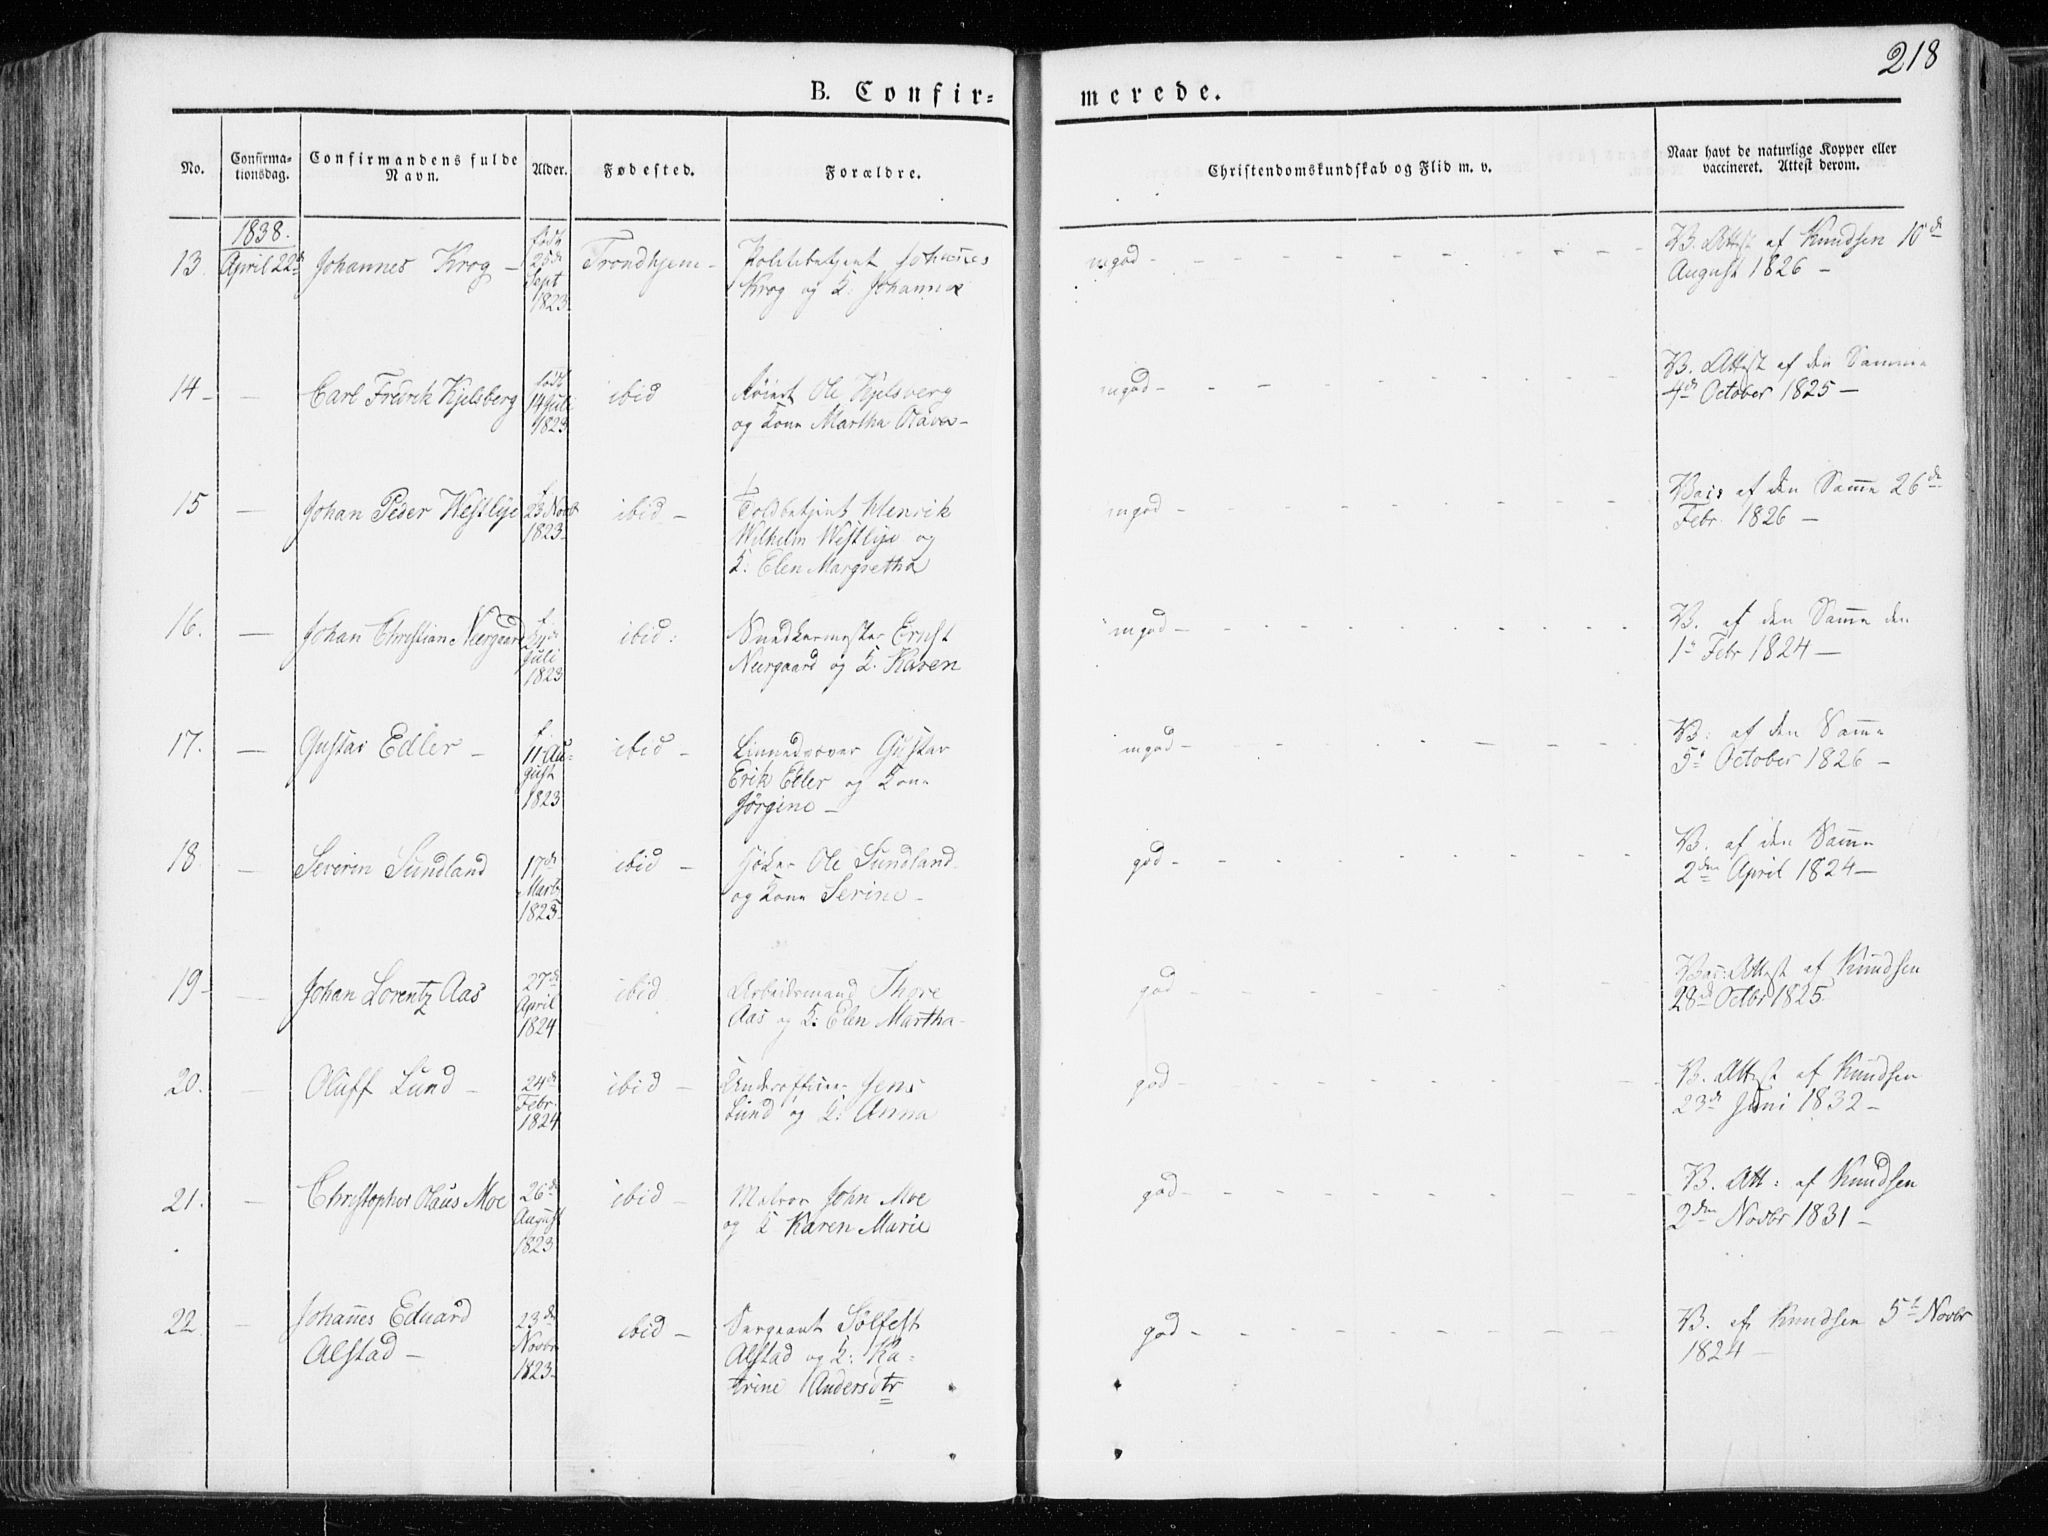 218
B. Confir=
merede.
No.
Confirma-
tionsdag.
Confirmandens fulde
Navn.
Alder.
Fødested.
Forældre.
Christendomskundskab og Flid m. v.
Naar havt de naturlige Kopper eller
vaccineret. Attest derom.
1838.
13. April 22de Johannes Krog - født 25de Sept 1823 Trondhjem - Politibetjent Johannes
Krog og K: Johanna
mgod - V. Attest af Knudsen 10de
August 1826 -
14 - - Carl Fredrik Kjelsberg født 14 Juli 1823 ibid Ole Kjelsberg
og Kone Martha Olava -
mgod - V. Attest af den Samme
4de October 1825 -
15 - Johan Peder Westlye f 23 Novbr 1823 ibid - Toldbetjent Henrik
Wilhelm Westlye og
K: Elen Margretha
mgod - Vacs af den Samme 26de
Febr. 1826 -
16. - Johan Christian Neergaard f Juli 1823 ibid: Snedkermester Ernst
Neergaard og K. Karen
mgod - V. af den Samme den
1ste Febr 1824 -
17. - Gustav Edler - f 11 August 1823 ibid - Gustav
Erik Edler og Kone
Jørgine -
mgod - V: af den Samme
5te October 1826 -
18. - Severin Sundland 17de Marts 1823 ibid - Ole Sundland
og Kone Serine -
god - V. af den Samme
2den April 1824 -
19 - - Johan Lorentz Aas 27de April 1824 ibid Arbeidsmand Thore
Aas og K: Elen Martha -
god - Vac: Attest af Knudsen
28de Octbr 1825
20. - Oluff Lund - 24de Febr. 1824 ibid - Underofficer Jens
Lund og K: Anna
god - V. Attest af Knudsen
23de Juni 1832 -
21. - Christopher Olaus Moe 26de August 1823 ibid - John Moe
og K Karen Marie
god - V. Att: af Knudsen
2den Novbr 1831 -
22 - Johannes Eduard
Alstad - 23de Novbr 1823 ibid - Sergeant Solfest
Alstad og K: Ka-
trine Andersdtr
god - V. af Knudsen 5te Novbr
1824 -